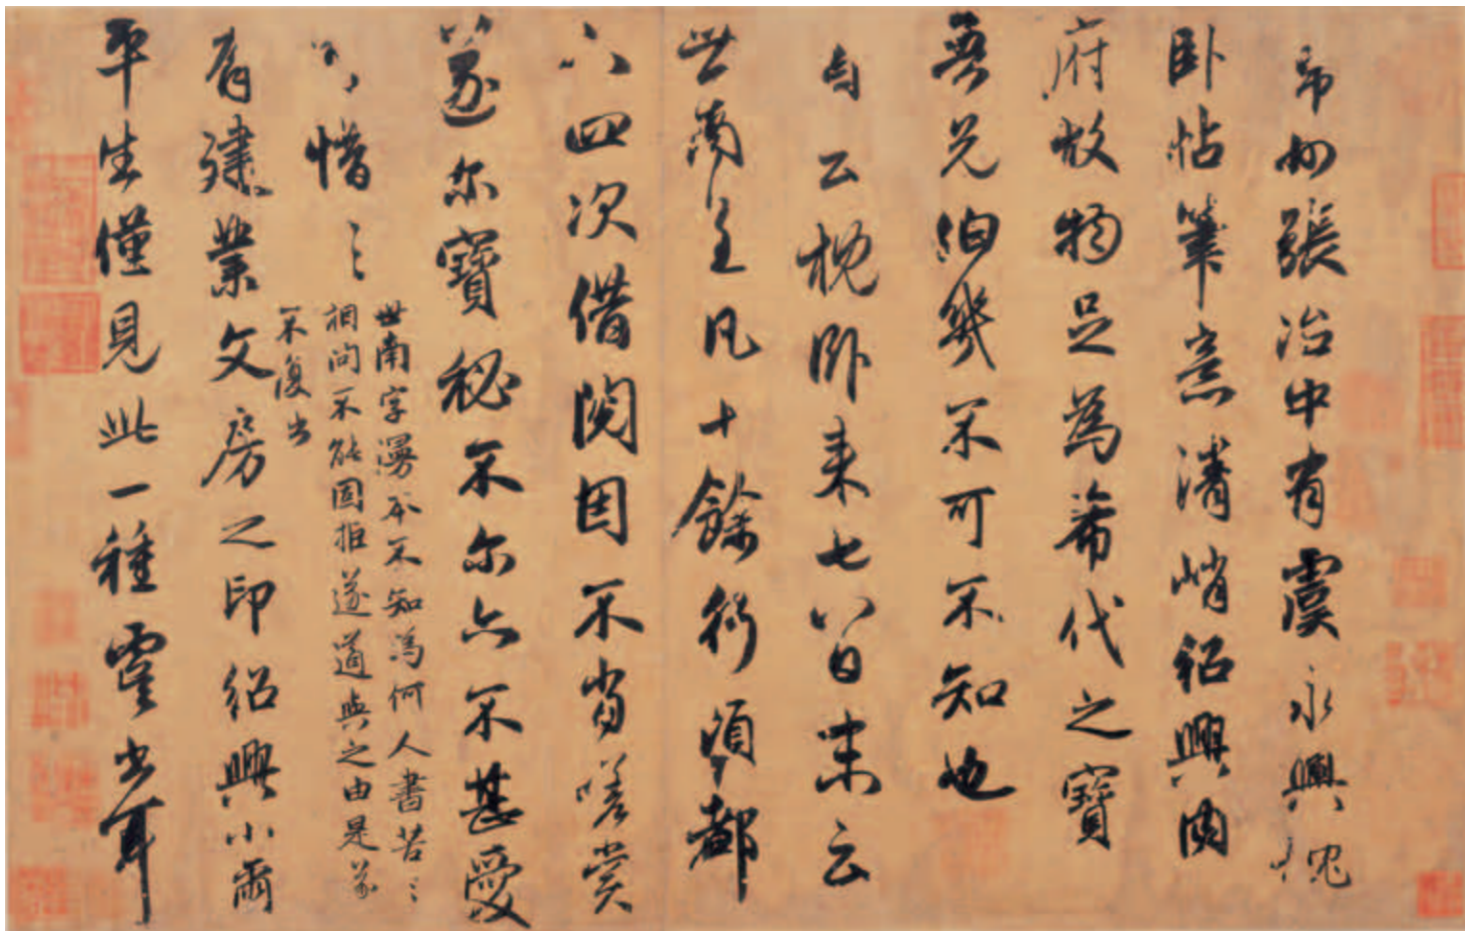 州張治中有虞永興枕
卧帖筆意清峭紹興内
府故物足為希代之寶
吾兄伯幾不可不知也
自云枕卧来七八日味云
世南至凡十餘行頃都
下四次借閱因不肯嗟賞
遂尔寶秘不尔亦不甚愛
可惜〻〻
世南字漫本不知為何人書苦〻
相問不能固拒遂道與之由是遂
不復出
有建業文房之印紹興小璽
平生僅見此一種虞書耳